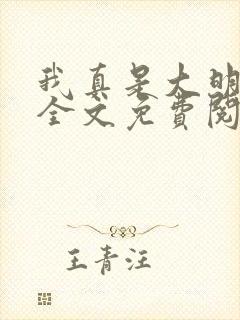 我真是大明
全文免費閱
王青汪